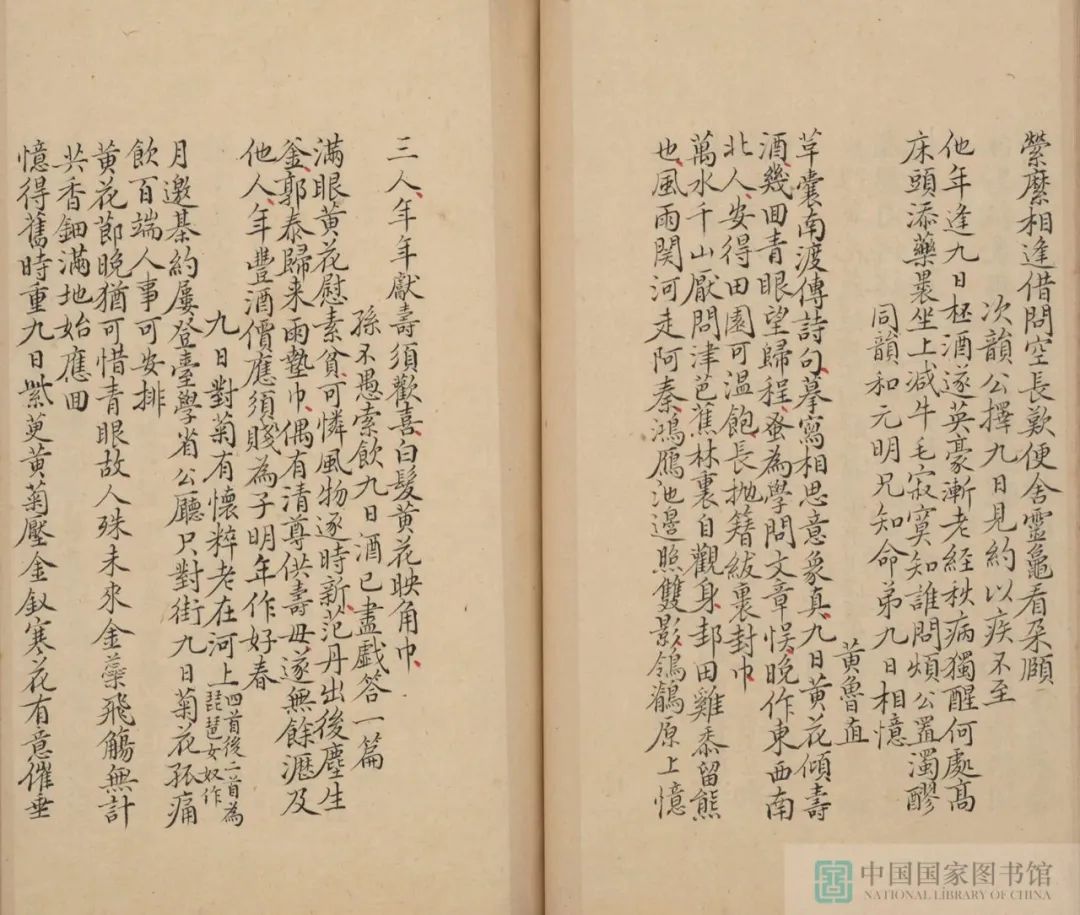 縈縻相逢借問空長歎便舍靈龜看朶頤
次韻公擇九日見約以疾不至
他年逢九日柸酒遂英豪漸老經秋病獨醒何處髙
床頭添藥裹坐上减牛毛寂寞知誰問煩公置濁醪
同韻和元明兄知命弟九日相憶
黄魯直
草囊南渡傳詩句摹寫相思意象真九日黄花傾壽
酒幾囬青眼望歸程蚤為學問文章悮晚作東西南
北人安得田園可温飽長抛簮紱裏封巾
萬水千山厭問津芭蕉林裏自觀身邽田雞黍留熊
也風雨関河走阿秦鴻鴈池邊照雙影鶺鴒原上憶
三人年年獻壽須歡喜白髮黄花映角巾
孫不愚索飲九日酒已盡戲答一篇
滿眼黄花慰素貧可憐風物逐時新范丹出後塵生
釜郭泰歸来雨墊巾偶有清尊供壽母遂無餘瀝及
他人年豐酒價應須賤為子明年作好春
九日對菊有懷粹老在河上四首後二首為琵琶女奴作
月邀棊約屢登臺學省公廳只對街九日菊花孤痛
飲百端人事可安排
黄花莭晚猶可惜青眼故人殊未來金蘂飛觴無計
共香鈿滿地始應囬
憶得舊時重九日紫萸黄菊壓金釵寒花有意催垂
中国国家图书馆
NATIONAL LIBRARY OF CHINA